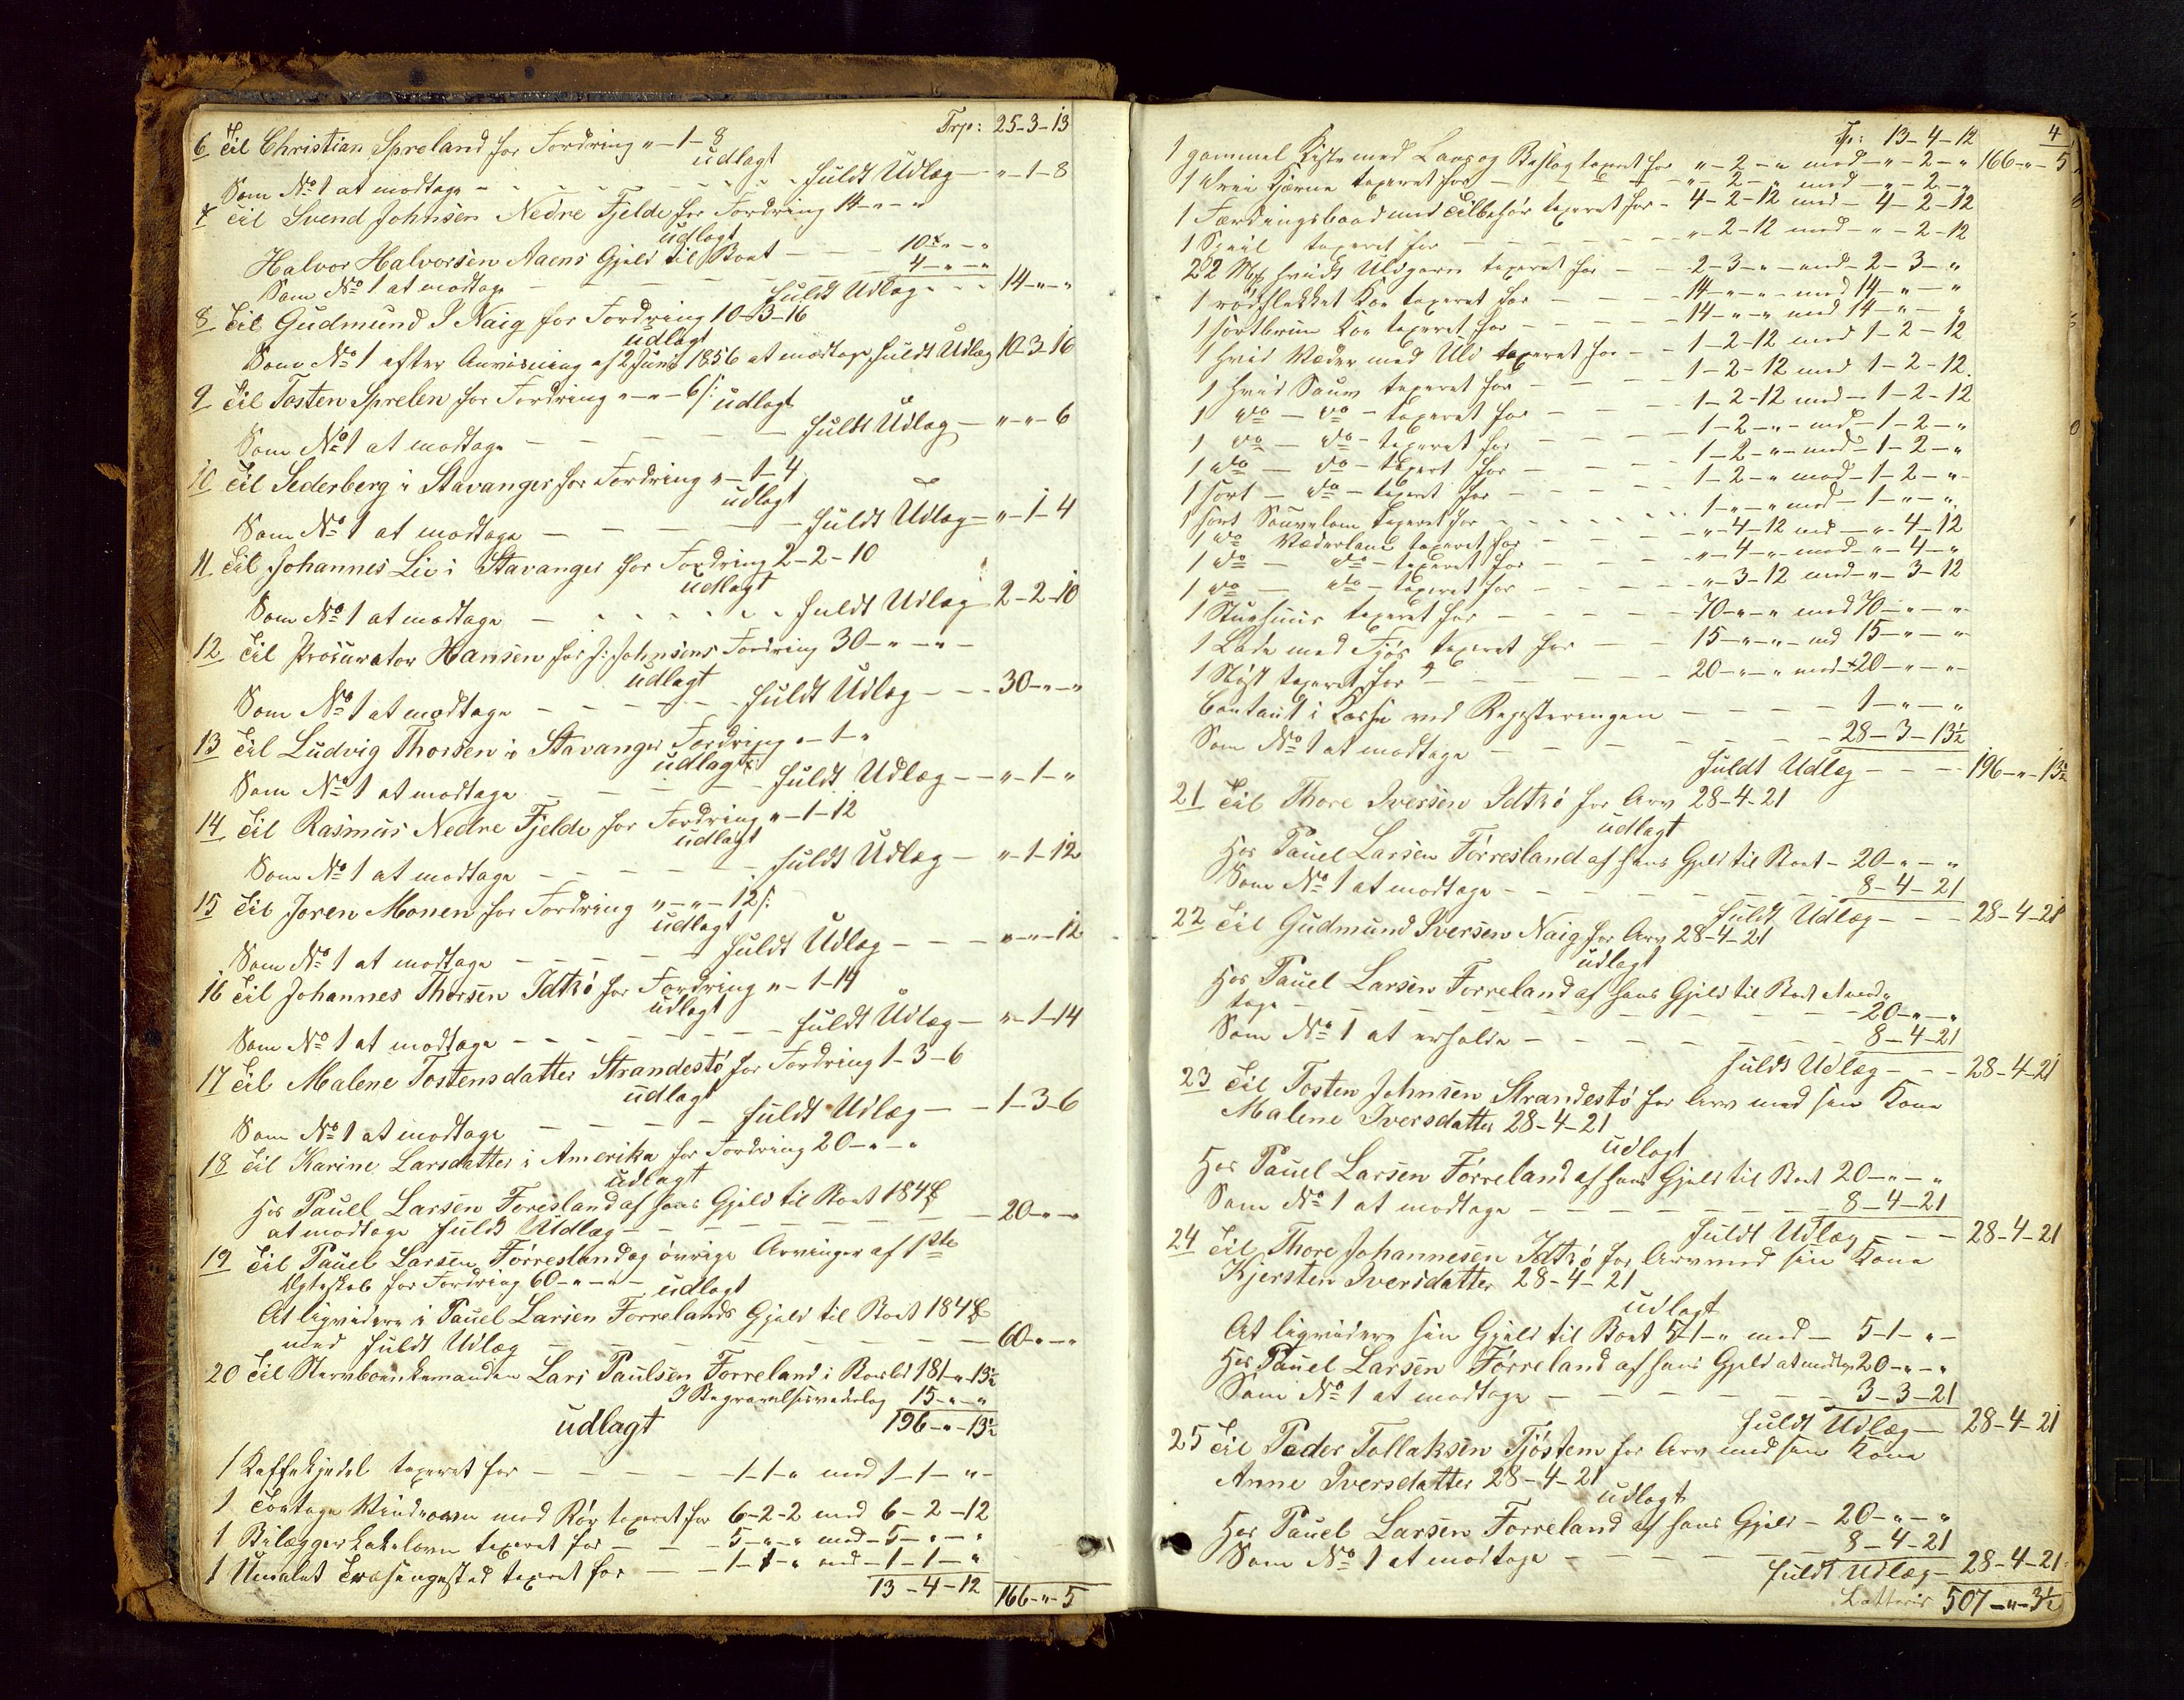 Trp: 25-3-13
6 Til Christian Spreland for Fordring "-1-8
udlagt
Som No 1 at modtage - - - fuldt Udlæg - "-1-8
7 Til Svend Johnsen Nedre Fjelde for Fordring 14-"-"
udlagt
Halvor Halvorsen Aaens Gjeld til Boet - - 10-"-"
Som No 1 at modtage - - - 4-"-"
fuldt Udlæg - - 14-"-"
8 Til Gudmund I Naig for Fordring 10-3-16
udlagt
Som No 1 efter Anvisning af 2 Juni 1856 at modtage fuldt Udlæg 10-3-16
9 Til Tosten Sprelen for Fordring "-"-6/:
udlagt
Som No 1 at modtage - - - fuldt Udlæg - "-"-6
10 Til Sederberg i Stavanger for Fordring "-1-4
udlagt
Som No 1 at modtage - - - fuldt Udlæg - "-1-4
11 Til Johannes Lie i Stavanger for Fordring 2-2-10
udlagt
Som No 1 at modtage - - - fuldt Udlæg 2-2-10
12 Til Procurator Hansen for J: Johnsens Fordring 30-"-"-
udlagt
Som No 1 at modtage - - - fuldt Udlæg - - 30-"-"
13 Til Ludvig Thorsen i Stavanger Fordring "-1-"
udlagt
Som No 1 at modtage - - - fuldt Udlæg - - "-1-"
14 Til Rasmus Nedre Fjelde for Fordring "-1-12
udlagt
Som No 1 at modtage - - - fuldt Udlæg - "-1-12
15 Til Joren Monen for Fordring "-"-12/:
udlagt
Som No 1 at modtage - - - fuldt Udlæg - - "-"-12
16 Til Johannes Thorsen Idtsö for Fordring "-1-14
udlagt
Som No 1 at modtage - - - fuldt Udlæg - "-1-14
17 Til Malene Tostensdatter Strandestö for Fordring 1-3-6
udlagt
Som No 1 at modtage - - - fuldt Udlæg - - 1-3-6
18 Til Karine Larsdatter i Amerika for Fordring 20-"-"
udlagt
Hos Pauel Larsen Foresland af hans Gjeld til Boet 184
at modtage fuldt Udlæg - - - 20-"-"
19 Til Pauel Larsen Förresland og övrige Arvinger af 1ste
Ægteskab for Fordring 60-"-"-
udlagt
At liqvidere i Pauel Larsen Forrelands Gjeld til Boet 184
med fuldt Udlæg - - - 60-"-"
20 Til Stervboenkemanden Lars Paulsen Forreland i Boslod 181-"-13½
3 Begravelsesvederlag 15-"-"
udlagt 196-"-13½
1 Kaffekjedel taxeret for - - - 1-1-" med 1-1-"-
1 Toetages Vindovn med Rör taxeret for 6-2-2 med 6-2-12
1 Bilæggerkakelovn taxeret for - - - 5-"-" med - 5-"-"
1 Umalet Træsengested taxeret for - - 1-1-" med - 1-1-"
13-4-12 166-"-5
4
Tp: 13-4-12
1 gammel Kiste med Laas og Beslag taxeret for "-2-" med "-2-" 166-"-5
1 Kjærne taxeret for - - "-2-" med - "-2-"
1 Færdingsbaad med Tilbehör taxeret for - 4-2-12 med - 4-2-12
1 Speil taxeret for - - - "-2-12 med - "-2-12
22 Mk hvidt Uldgarn taxeret for - - 2-3-" med - 2-3-"
1 rödflekket Koe taxeret for - - - 14-"-" med 14-"-"
1 sortbrun Koe taxeret for - - - 14-"-" med 14-"-"
1 hvid Væder med Uld taxeret for - - 1-2-12 med 1-2-12
1 hvid Sauv taxeret for - - - 1-2-12 med 1-2-12.
1 do - do - taxeret for - - - 1-2-12 med - 1-2-12
1 do - do - taxeret for - - - 1-2-" med - 1-2-"
1 do - do - taxeret for - - - 1-2-" med - 1-2-"
1 sort - do - taxeret for - - - 1-2-" med - 1-2-"-
1 sort Sauvelam taxeret for - - - 1-"-" med - 1-"-"
1 do Væderlam taxeret for - - - "-4-12 med - "-4-12
1 do - do - taxeret for - - - "-4-" med - "-4-"
1 do - do - taxeret for - - - "-3-12 med - "-3-12
1 Stuehuus taxeret for - - - 70-"-" med 70-"-"
1 Lade med Fjös taxeret for - - 15-"-" med 15-"-"
1 Nöst taxeret for - - - 20-"-" med 20-"-"-
Contant i Kasse ved Registeringen - - - 1-"-"
Som No 1 at modtage - - - 28-3-13½
fuldt Udlæg - - - 196-"-13½
21 Til Thore Iversen Idtsö for Arv 28-4-21
udlagt
Hos Pauel Larsen Förresland af hans Gjeld til Boet - 20-"-"
Som No 1 at modtage - - - 8-4-21
fuldt Udlæg - - - 28-4-21
22 Til Gudmund Iversen Naig for Arv 28-4-21
udlagt
Hos Pauel Larsen Forreland af hans Gjeld til Boet at mod-
tage - - - 20-"-"
Som No 1 at erholde - - - 8-4-21
fuldt Udlæg - - - 28-4-21
23 Til Tosten Johnsen Strandestö for Arv med sin Kone
Malene Iversdatter 28-4-21
udlagt
Hos Pauel Larsen Förreland af hans Gjeld til Boet 20-"-"
Som No 1 at modtage - - - 8-4-21
fuldt Udlæg - - - 28-4-21
24 Til Thore Johannesen Idtsö for Arv med sin Kone
Kjersten Iversdatter 28-4-21
udlagt
At liqvidere sin Gjeld til Boet 5-1-" med - 5-1-"-
Hos Pauel Larsen Förreland af hans Gjeld at modtage 20-"-"
Som No 1 at modtage - - - 3-3-21
fuldt Udlæg - 28-4-21
25 Til Peder Tollaksen Tjöstem for Arv med sin Kone
Anne Iversdatter 28-4-21
udlagt
Hos Pauel Larsen Forreland af hans Gjeld - 20-"-"
Som No 1 at modtage - - - 8-4-21
fuldt Udlæg - 28-4-21
Latteris 507-"-3½